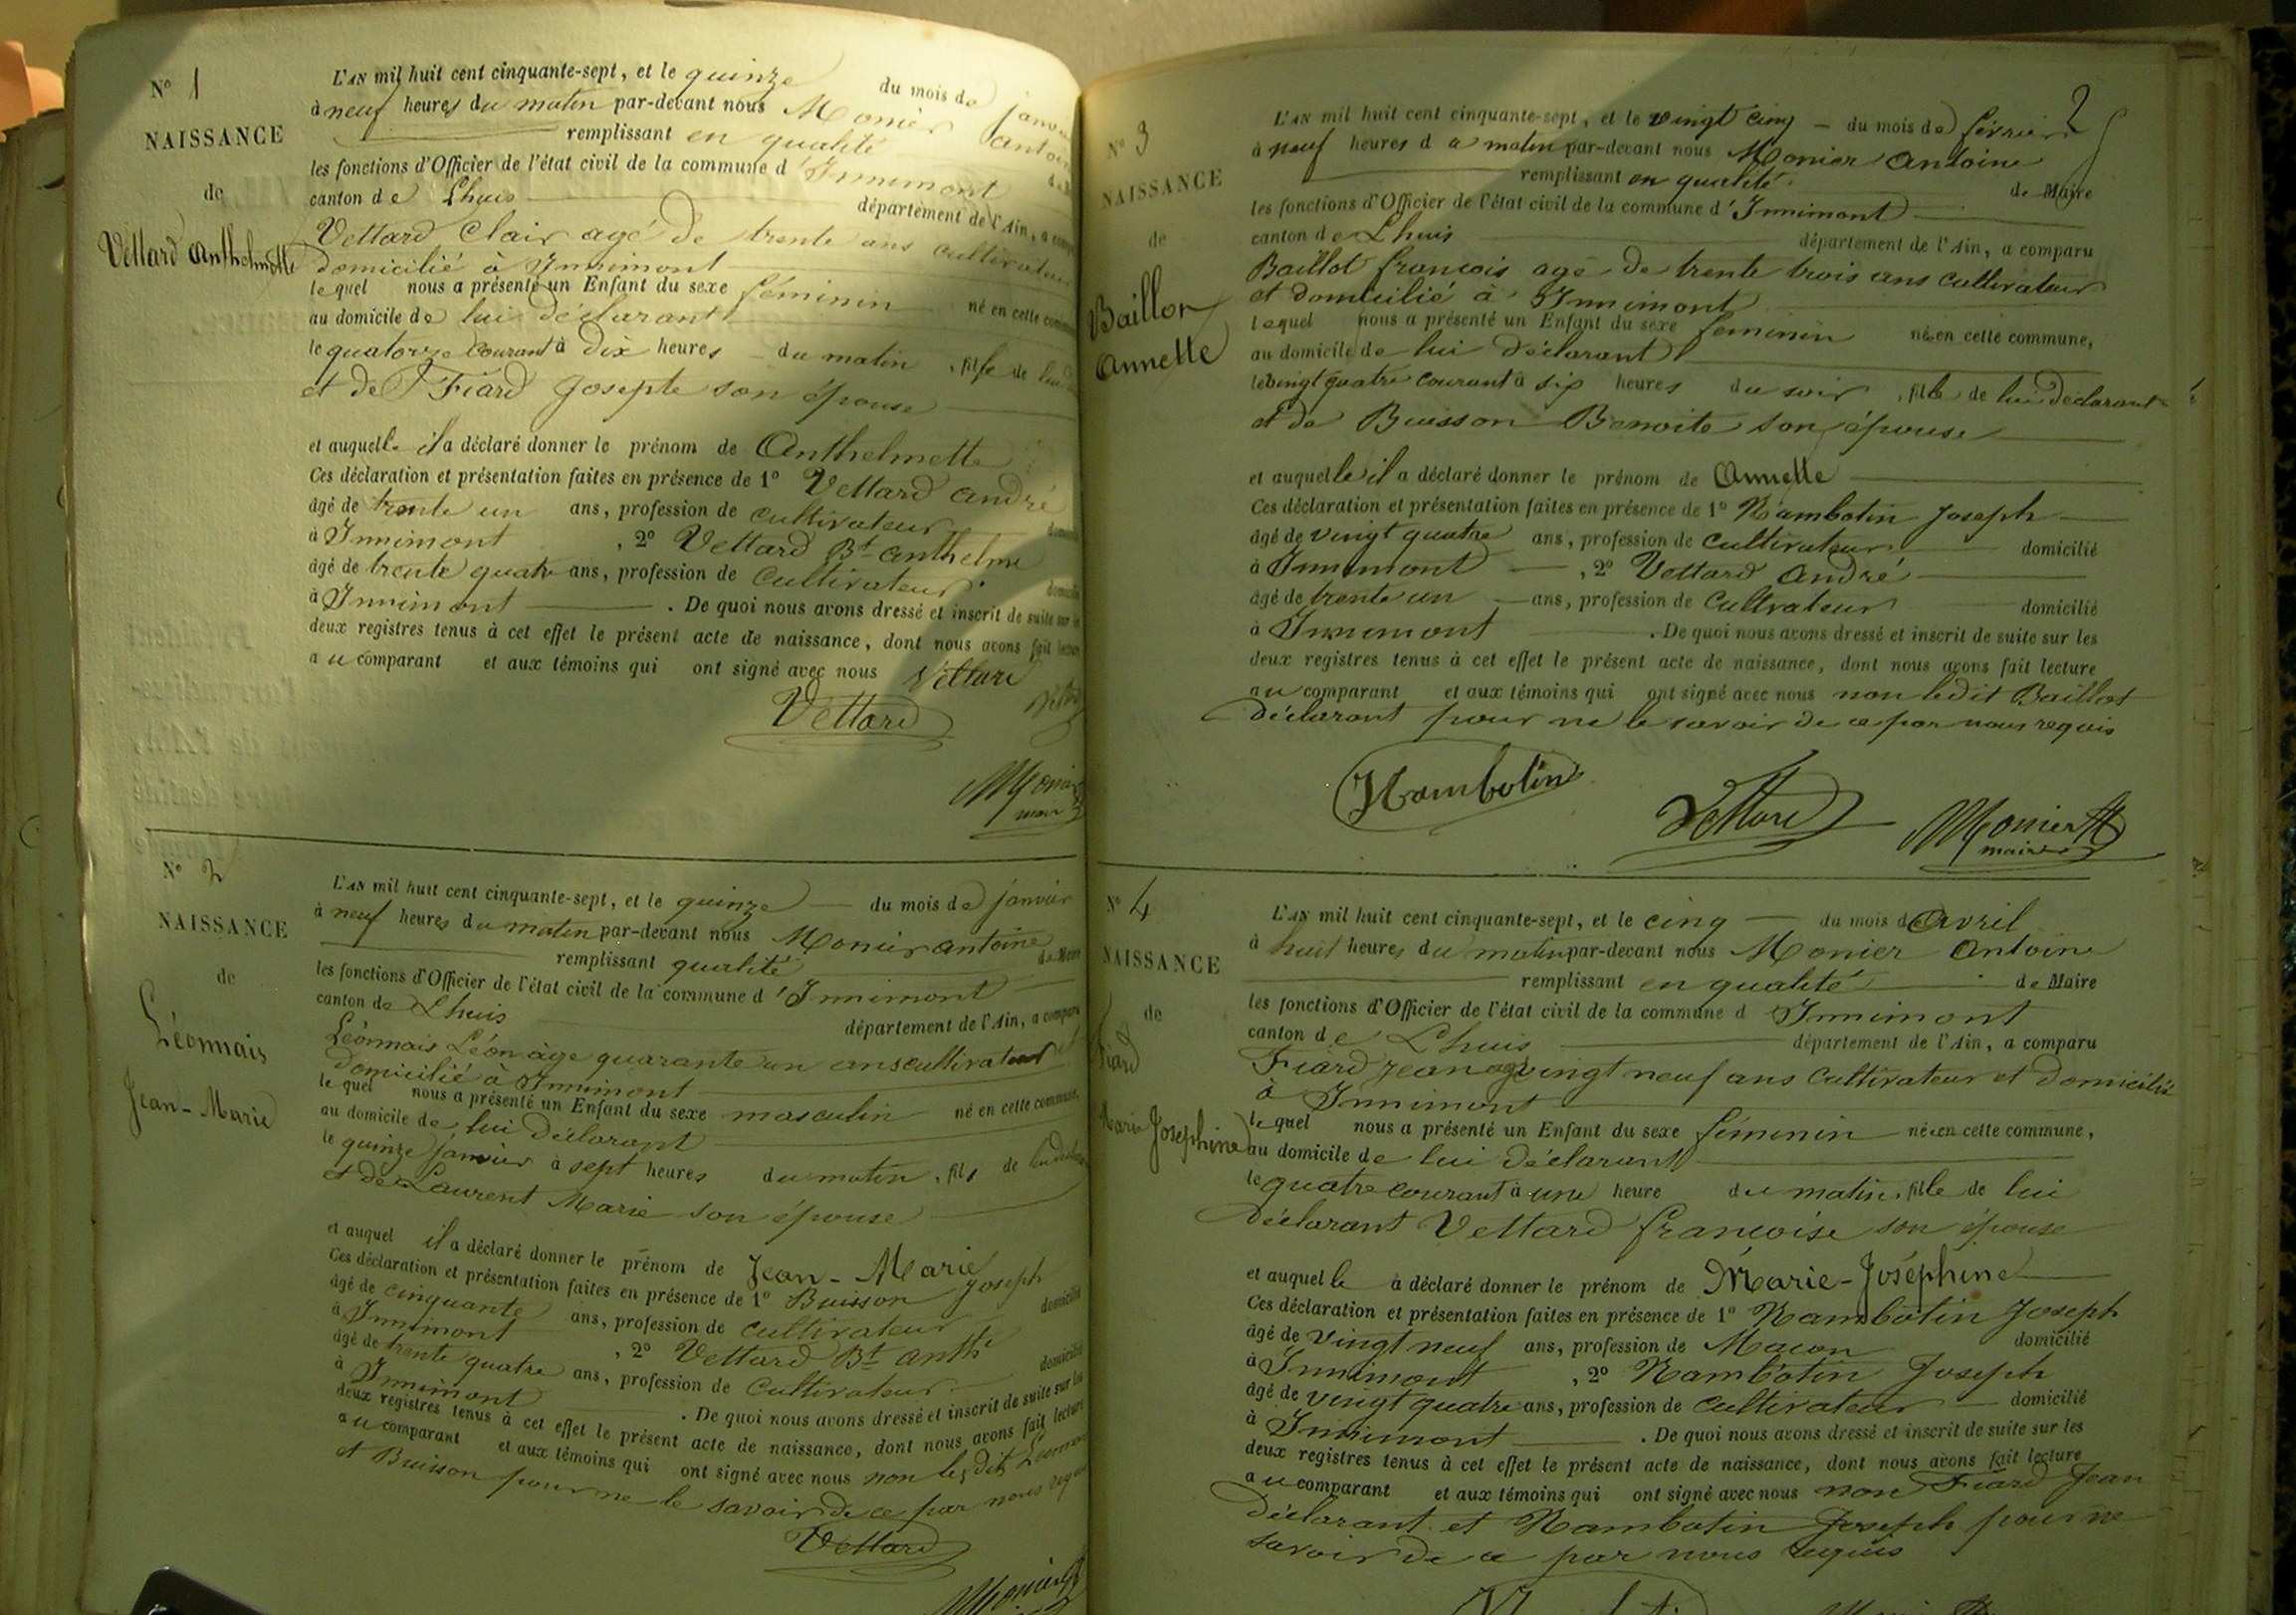 N° 1
NAISSANCE
de
Vettard Anthelmette
L'AN mil huit cent cinquante-sept, et le quinze du mois de
à neuf heures du matin par-devant nous Monier
remplissant en qualité
les fonctions d'Officier de l'état civil de la commune d'Innimont
canton de Lhuis département de l'Ain, a
Vettard Clair agé de trente ans cultivateur
domicilié à Innimont
lequel nous a présenté un Enfant du sexe féminin né en cette
au domicile de lui déclarant
le quatorze courant à dix heures du matin, fille de lui
et de Fiard Josepte son épouse
et auquelle il a déclaré donner le prénom de Anthelmette
Ces déclaration et présentation faites en présence de 1° Vettard André
âgé de trente un ans, profession de cultivateur
à Innimont , 2° Vettard Bt Anthelme
âgé de trente quatre ans, profession de cultivateur
à Innimont . De quoi nous avons dressé et inscrit de suite sur
deux registres tenus à cet effet le présent acte de naissance, dont nous avons fait lecture
au comparant et aux témoins qui ont signé avec nous Vettard
Vettard
Monier
maire
N° 2
NAISSANCE
de
Léonnais
Jean-Marie
L'AN mil huit cent cinquante-sept, et le quinze du mois de janvier
à neuf heures du matin par-devant nous Monier antoine
remplissant qualité de Maire
les fonctions d'Officier de l'état civil de la commune d'Innimont
canton de Lhuis département de l'Ain, a comparu
Léonnais Léon âge quarante un ans cultivateur et
domicilié à Innimont
lequel nous a présenté un Enfant du sexe masculin né en cette commune,
au domicile de lui déclarant
le quinze janvier à sept heures du matin, fils de
et de Laurent Marie son épouse
et auquel il a déclaré donner le prénom de Jean-Marie
Ces déclaration et présentation faites en présence de 1° Buisson Joseph
âgé de cinquante ans, profession de cultivateur domicilié
à Innimont , 2° Vettard Bt Anth
âgé de trente quatre ans, profession de cultivateur domicilié
à Innimont . De quoi nous avons dressé et inscrit de suite sur les
deux registres tenus à cet effet le présent acte de naissance, dont nous avons fait lecture
au comparant et aux témoins qui ont signé avec nous non les dits
et Buisson pour ne le savoir de ce par nous
Vettard
Monier
2
N° 3
NAISSANCE
de
Baillon
Annette
L'AN mil huit cent cinquante-sept, et le vingt cinq du mois de février
à neuf heures du matin par-devant nous Monier Antoine
remplissant en qualité de Maire
les fonctions d'Officier de l'état civil de la commune d'Innimont
canton de Lhuis département de l'Ain, a comparu
Baillot françois agé de trente trois ans cultivateur
et domicilié à Innimont
lequel nous a présenté un Enfant du sexe féminin née en cette commune,
au domicile de lui déclarant
le vingt quatre courant à six heures du soir, fille de lui déclarant
et de Buisson Benoite son épouse
et auquelle il a déclaré donner le prénom de Annette
Ces déclaration et présentation faites en présence de 1° Rambotin Joseph
âgé de vingt quatre ans, profession de cultivateur domicilié
à Innimont , 2° Vettard André
âgé de trente un ans, profession de cultivateur domicilié
à Innimont . De quoi nous avons dressé et inscrit de suite sur les
deux registres tenus à cet effet le présent acte de naissance, dont nous avons fait lecture
au comparant et aux témoins qui ont signé avec nous non ledit Baillot
déclarant pour ne le savoir de ce par nous requis
Rambotin
Vettard
Monier
maire
N° 4
NAISSANCE
de
Fiard
Marie Josephine
L'AN mil huit cent cinquante-sept, et le cinq du mois d'Avril
à huit heures du matin par-devant nous Monier Antoine
remplissant en qualité de Maire
les fonctions d'Officier de l'état civil de la commune d Innimont
canton de Lhuis département de l'Ain, a comparu
Fiard Jean agé vingt neuf ans cultivateur et domicilié
à Innimont
lequel nous a présenté un Enfant du sexe féminin née en cette commune,
au domicile de lui déclarant
le quatre courant à une heure du matin, fille de lui
déclarant Vettard françoise son épouse
et auquelle a déclaré donner le prénom de Marie-Joséphine
Ces déclaration et présentation faites en présence de 1° Rambotin Joseph
âgé de vingt neuf ans, profession de Maçon domicilié
à Innimont , 2° Rambotin Joseph
âgé de vingt quatre ans, profession de cultivateur domicilié
à Innimont . De quoi nous avons dressé et inscrit de suite sur les
deux registres tenus à cet effet le présent acte de naissance, dont nous avons fait lecture
au comparant et aux témoins qui ont signé avec nous non Fiard Jean
déclarant et Rambotin Joseph pour ne
savoir de ce par nous requis